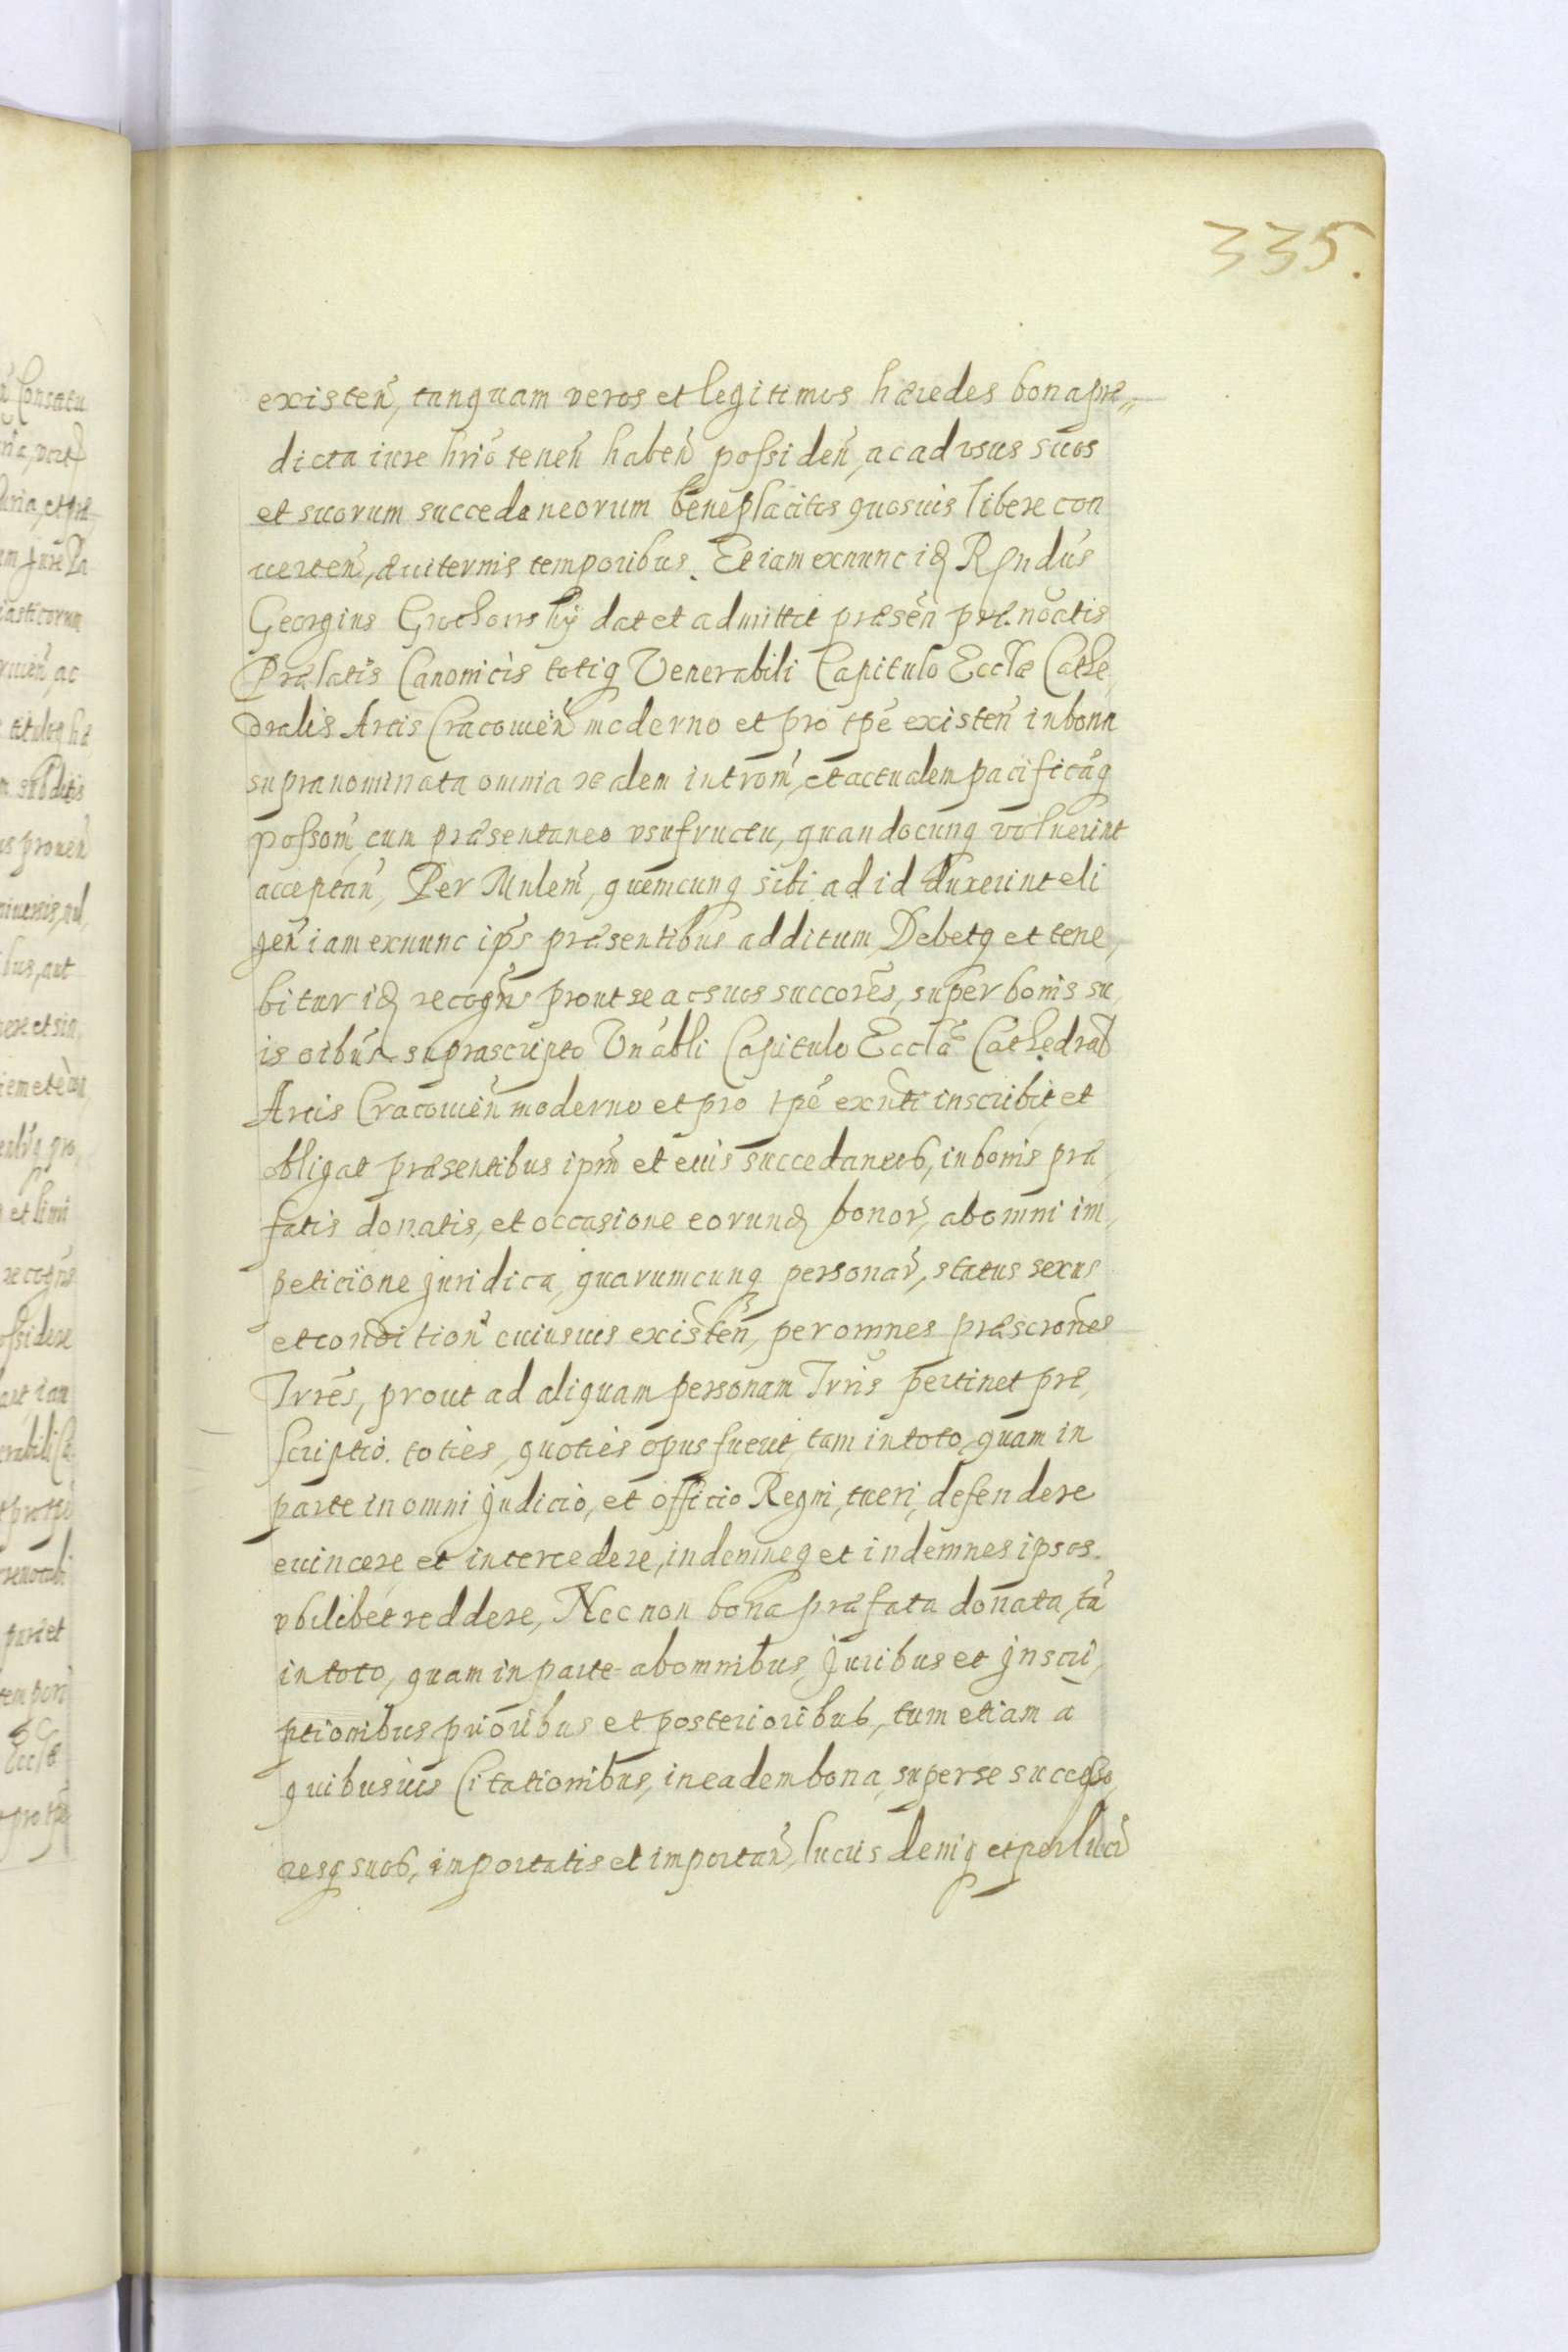 335.
existen̄, tanquam veros et legitimos hæredes bona præ„
dicta iure hrio tenen̄ haben̄ possiden̄, ac ad vsus suos
et suorum succedaneorum beneplacitos quosuis libere con
uerten̄, æuiternis temporibus. Et iam exnunc idꝫ Rn̄dus
Georgius Grochowskÿ dat et admittit præsen̄ præ.noatis
Prælatis Canonicis totiq Venerabili Capitulo Ecclæ Cathe,
dralis Arcis Cracouien̄ moderno et pro tp̄e existen̄ in bona
supranominata omnia realem introm̄, et actualem pacificāq
possom̄, cum præsentaneo vsufructu, quandocunq voluerint
acceptan̄, Per Mnlem̄, quemcunq sibi ad id duxerint eli
gen̄ iam exnunc ip̄s præsentibus additum, Debetq et tene,
bitur idꝫ recogn̄s prout se ac suos succores, super bonis su,
is oibus suprascripto Vnabli Capitulo Ecclæ Cathedral
Arcis Cracouien̄ moderno et pro tp̄e exn̄ti inscribit, et
obligat præsentibus ipm̄ et eius succedaneos, in bonis præ,
fatis donatis, et occasione eorundꝫ bonor̄, ab omni im,
peticione juridica, quarumcunq personar̄, status sexus
et condition̄ cuiusuis existen̄, per omnes præscrones
Trrēs, prout ad aliquam personam Trris pertinet præ,
scriptio. toties, quoties opus fuerit, tam in toto, quam in
parte in omni judicio, et officio Regni, tueri, defendere
euincere et intercedere, indemneq et indemnes ipsos.
vbilibet reddere, Nec non bona præfata donata, tā
in toto, quam in parte ab omnibus, juribus et jnscri,
ptionibus prioribus et posterioribus, tum etiam a
quibusuis Citationibus, in eadem bona, super se successo,
resq suos, importatis et importan̄, lucris deniq et perlucr̄